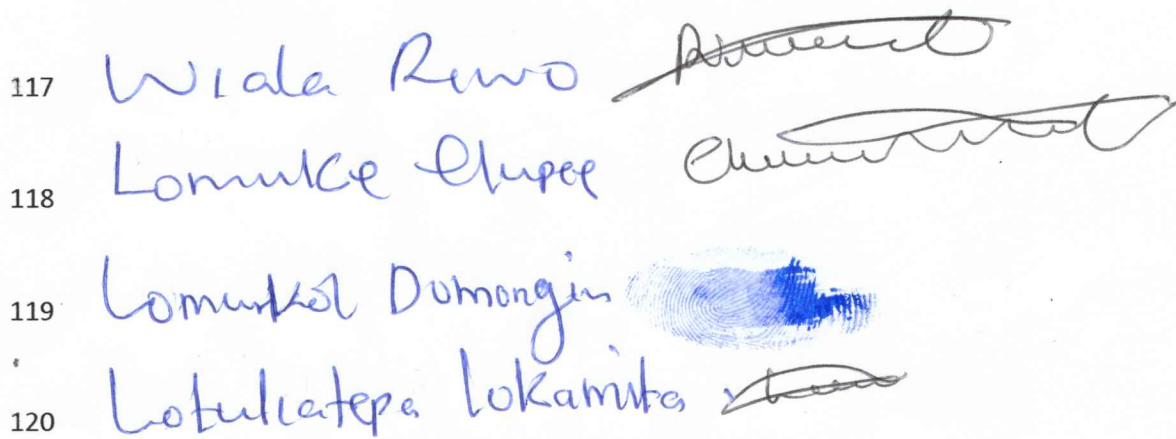 117 Wiala Revo
118 Lomuke Elupee
119 Lomurkol Domongin
120 Lotukatepa Lokamita